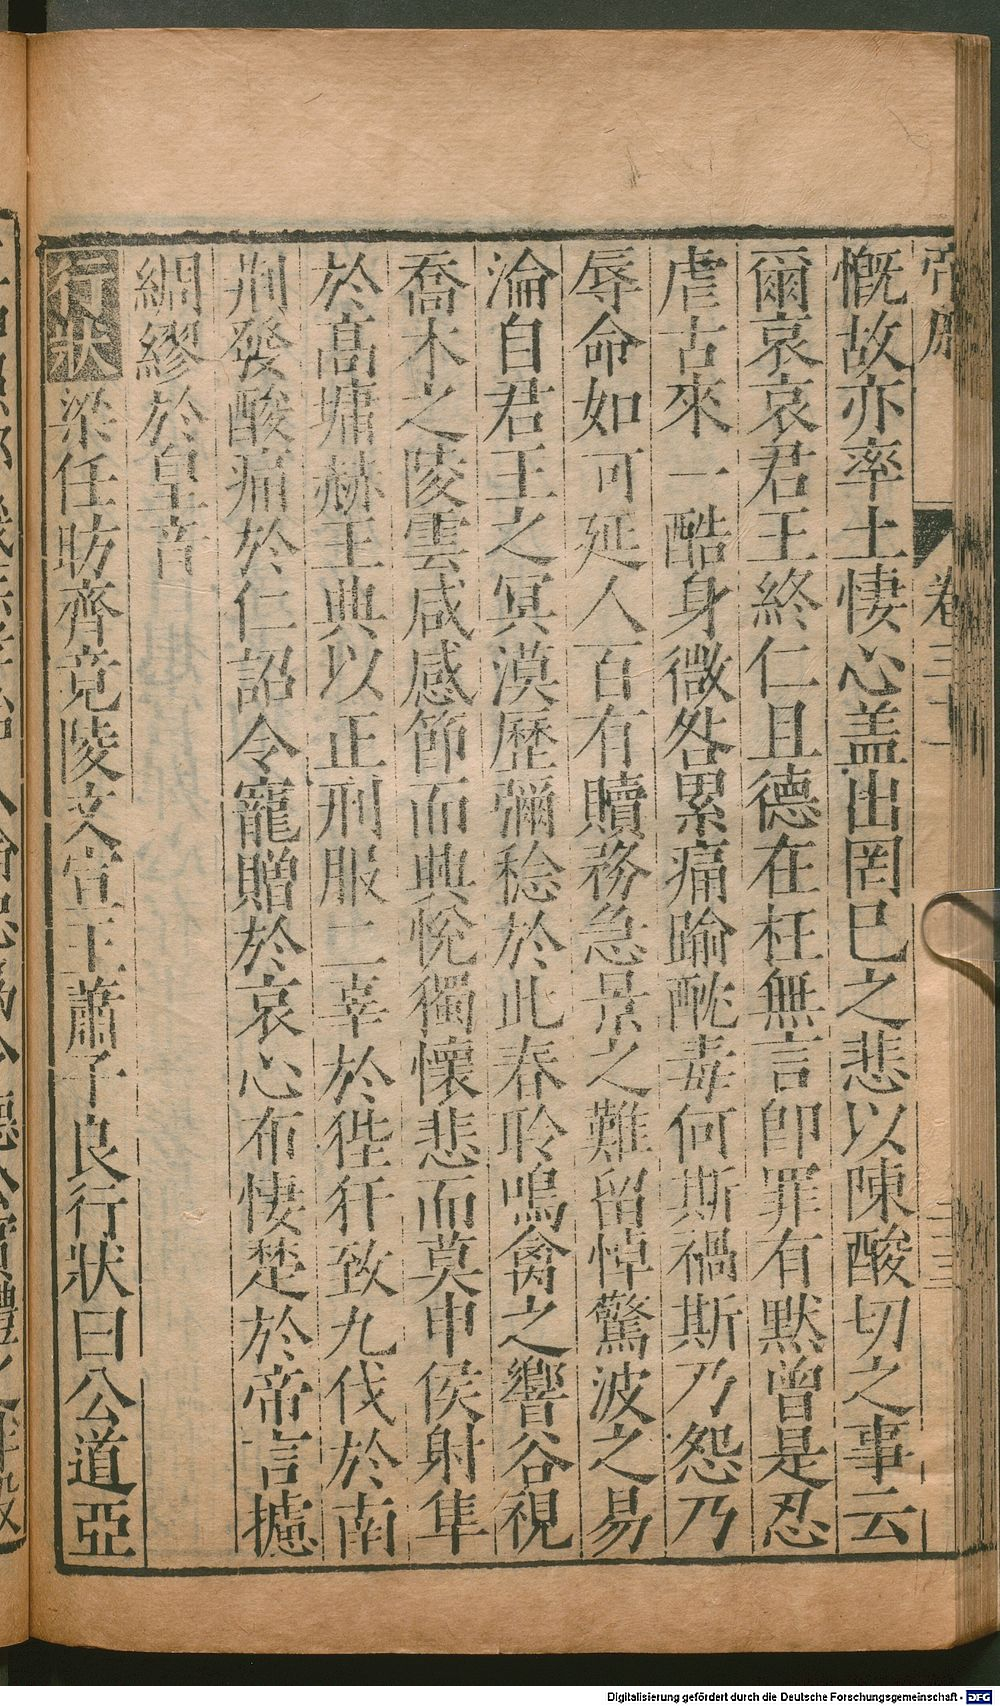 慨故亦率土悽心盖出罔巳之悲以陳酸切之事云
爾哀哀君王終仁且德在枉無言卽罪有黙曾是忍
虐古來一酷身微咎累痛踰酖毒何斯禍斯乃怨乃
辱命如可延人百有贖務急景之難留悼驚波之易
淪自君王之冥漠歷彌稔於此春聆鳴禽之響谷視
喬木之陵雲咸感節而興悅獨懷悲而莫申侯射隼
於高墉赫王典以正刑服二辜於狴犴致九伐於南
荆發酸痛於仁詔令寵贈於哀心布悽楚於帝言攄
綢繆於皇音
行狀梁任昉齊竟陵文宣王蕭子良行狀曰公道亞
卷三十一
Digitalisierung gefördert durch die Deutsche Forschungsgemeinschaft - DFG